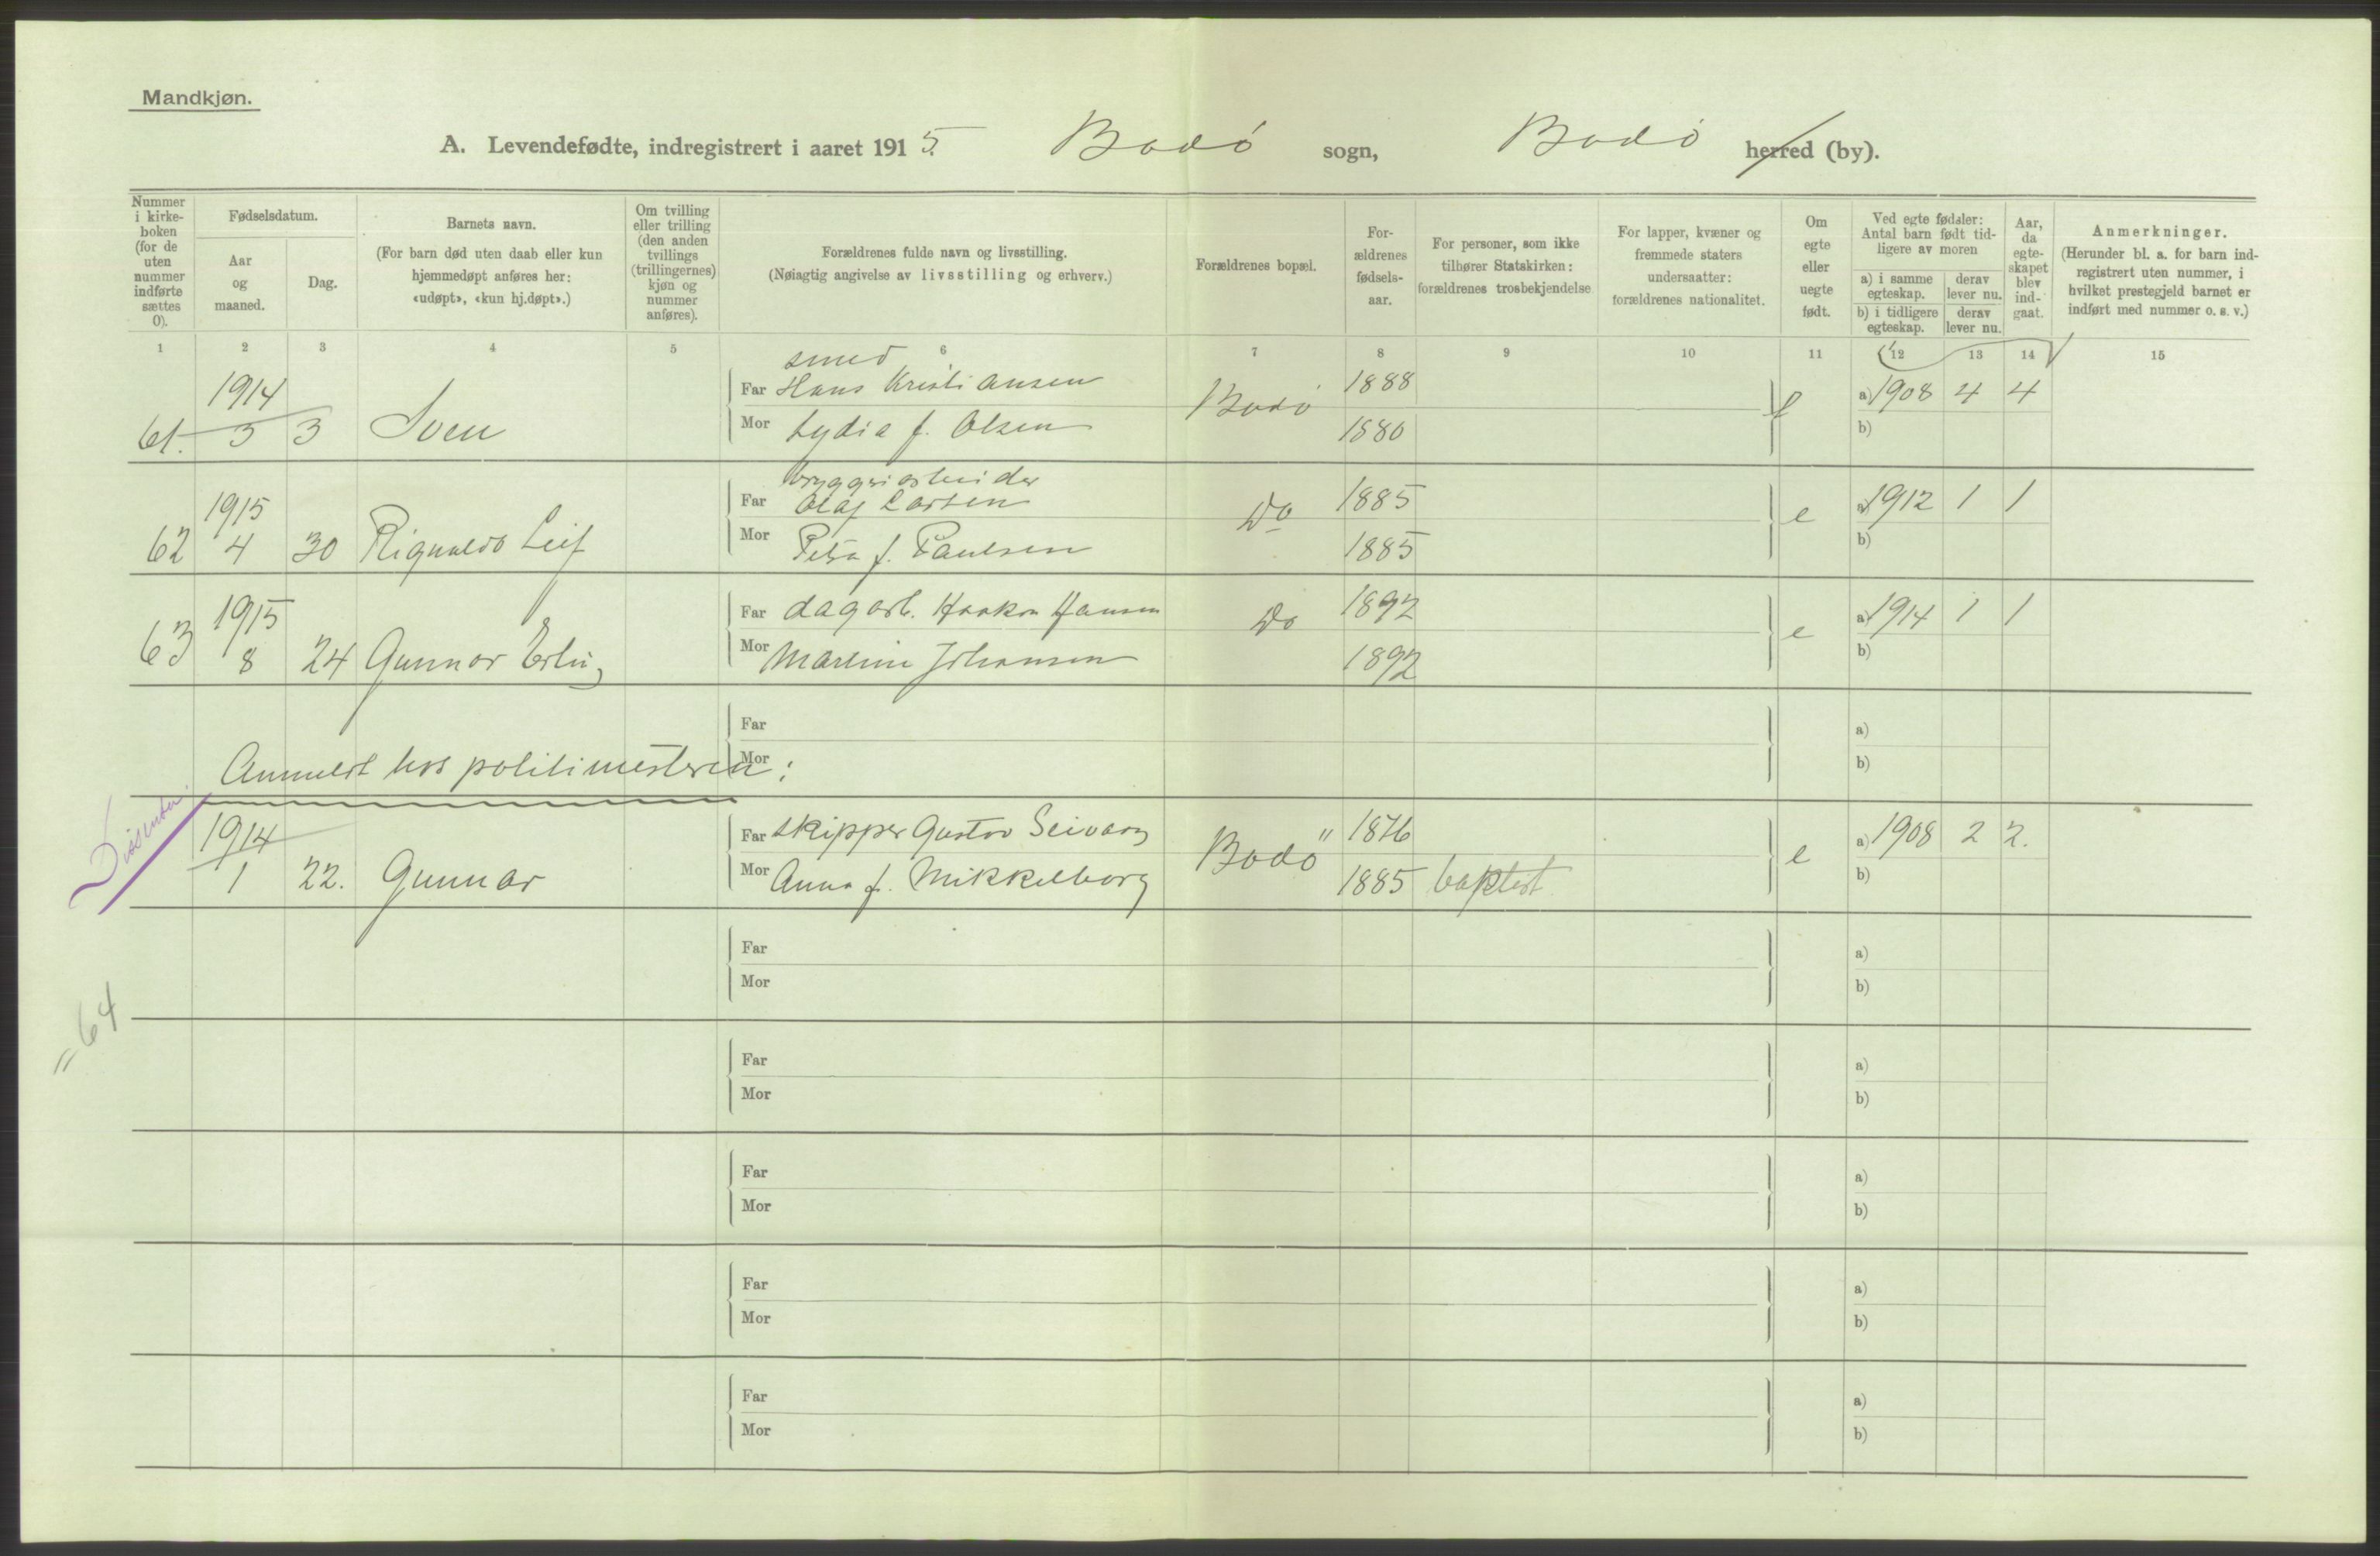 Mandkjøn.
A. Levendefødte, indregistrert i aaret 1915. Bodø sogn, Bodø herred (by).
Nummer i kirke-boken (for de uten nummer indførte sættes 0).
Fødselsdatum.
Aar og maaned.
Dag.
Barnets navn.
(For barn død uten daab eller kun hjemmedøpt anføres her: «udøpt», «kun hj.døpt».)
Om tvilling eller trilling (den anden tvillings (trillingernes) kjøn og nummer anføres).
Forældrenes fulde navn og livsstilling.
(Nøiagtig angivelse av livsstilling og erhverv.)
Forældrenes bopæl.
For-ældrenes fødsels-aar.
For personer, som ikke tilhører Statskirken: forældrenes trosbekjendelse
For lapper, kvæner og fremmede staters undersaatter: forældrenes nationalitet.
Om egte eller uegte født.
Ved egte fødsler: Antal barn født tid-ligere av moren
a) i samme egteskap.
derav lever nu.
b) i tidligere egteskap.
derav lever nu.
Aar, da egte-skapet blev ind-gaat.
Anmerkninger.
(Herunder bl. a. for barn ind-registrert uten nummer, i hvilket prestegjeld barnet er indført med nummer o. s. v.)
1 2 3 4 5 6 7 8 9 10 11 12 13 14 15
smed
1914 Far Hans Kristiansen Bodø 1888 a) 1908 4 4
61. 3 3 Sven Mor Lydia f. Olsen 1880 e b)
bryggeiarbeider
1915 Far Olaf Larsen Do 1885 a) 1912 1 1
62 4 30 Rignvald Leif Mor Petra f. Paulsen 1885 e b)
1915 Far dagarb. Haakon Hansen Do 1892 a) 1914 1 1
63 8 24 Gunnar Erling Mor Johansen 1892 e b)
Far a)
Anmeldt hos politimesteren: Mor b)
Dissenter.
1914 Far skipper Gustav Bodø 1876 a) 1908 2 2.
1 22. Gunnar Mor Anna f. Mikkelborg 1885 baptist e b)
Far a)
Mor b)
= 64
Far a)
Mor b)
Far a)
Mor b)
Far a)
Mor b)
Far a)
Mor b)